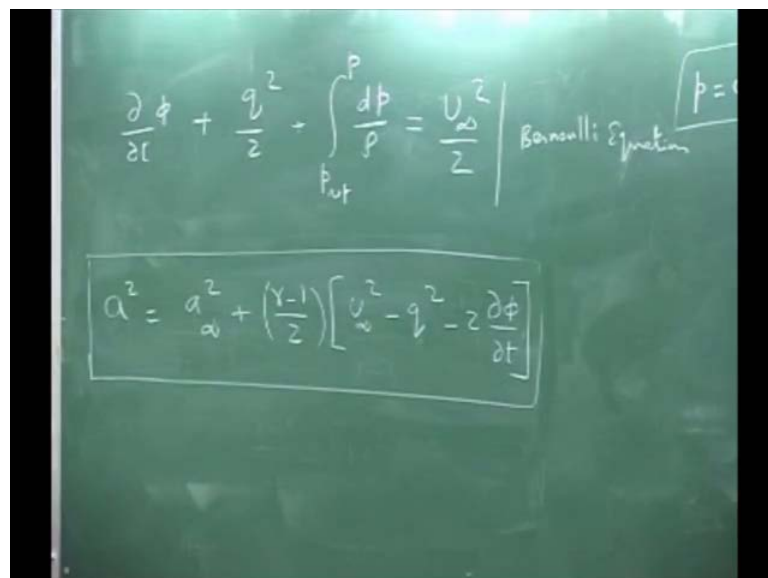 ∂ϕ/∂t + q²/2 + ∫ dp/ρ = U∞²/2 | Bernoulli Equation
p =
a² = a∞² + ((γ-1)/2) [U∞² - q² - 2 ∂ϕ/∂t]